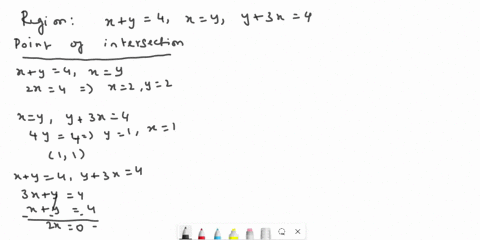 Region: x+y=4, x=y, y+3x=4
Point of intersection
x+y=4, x=y
2x=4 => x=2, y=2
x=y, y+3x=4
4y=4=> y=1, x=1
(1,1)
x+y=4, y+3x=4
3x+y=4
x+y=4
- - -
2x=0